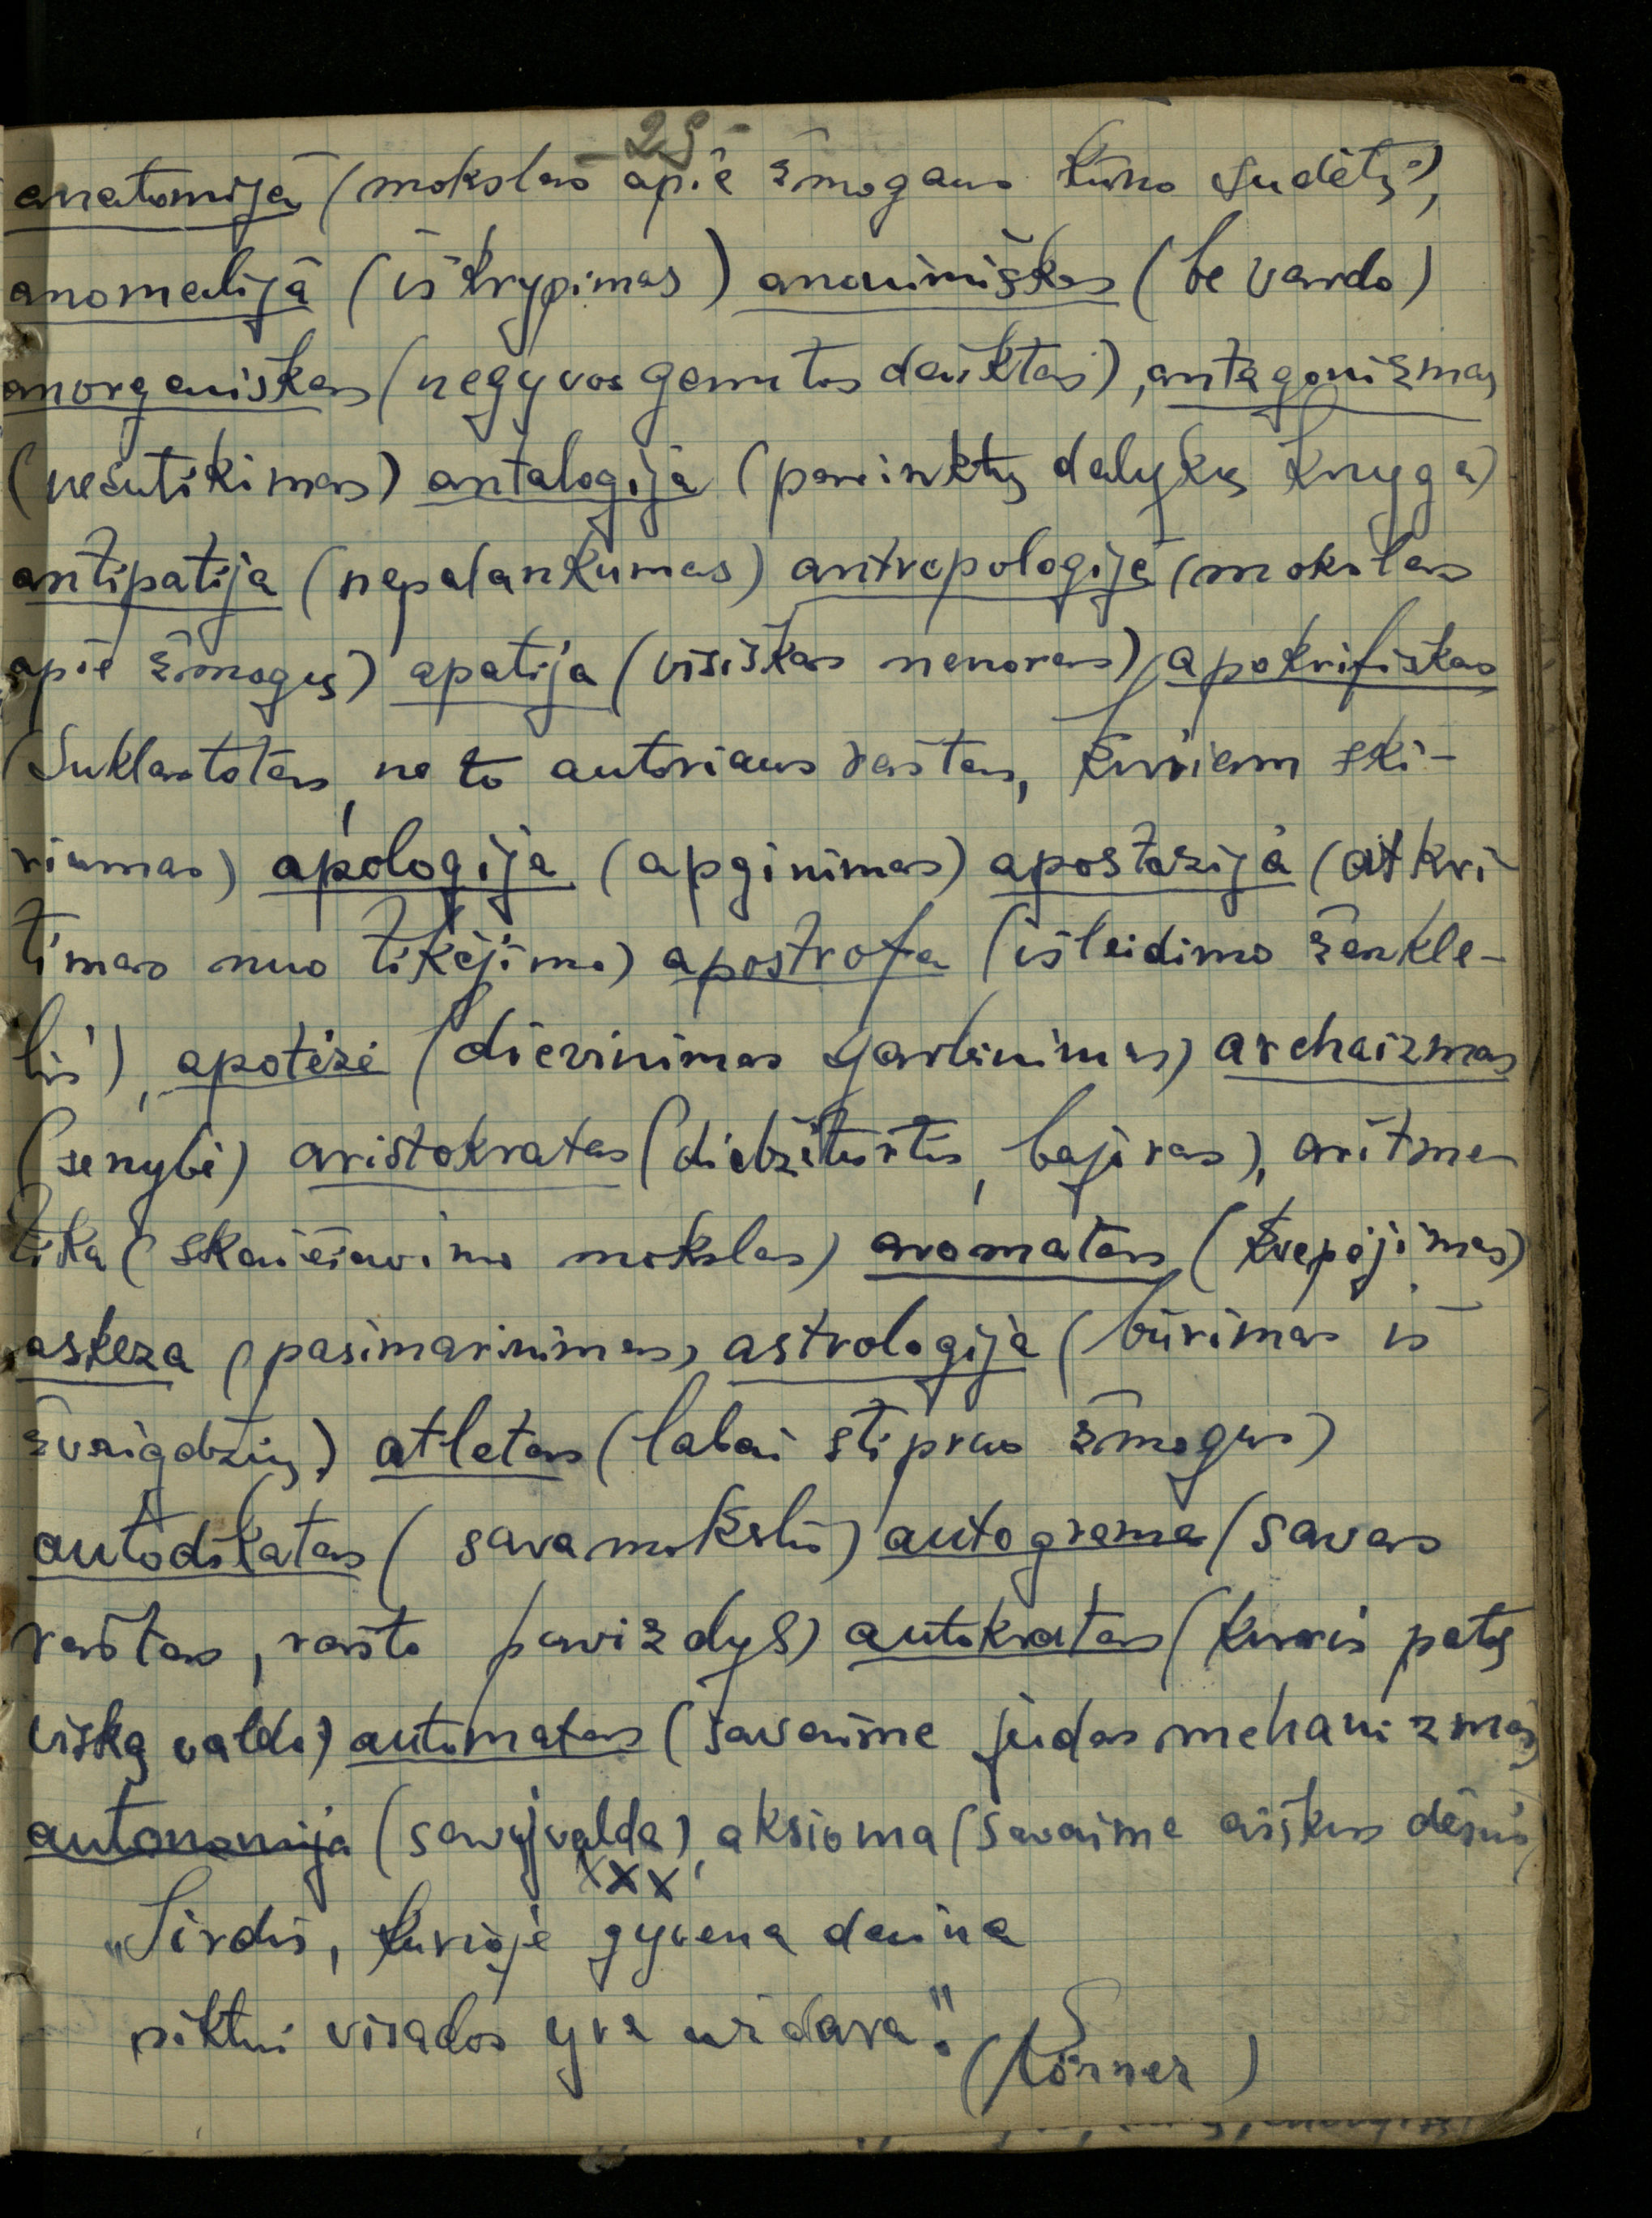 - 25 -
anatomija (mokslas apie žmogaus kūno sudėtį),
anomalija (iškrypimas) anonimiškas (be vardo)
anorganiškas (negyvos gamtos daiktas), antagonizmas
(nesutikimas) antalogija (parinktų dalykų knyga)
antipatija (nepalankumas) antropologija (mokslas
apie žmogų) apatija (visiškas nenoras), apokrifiškas
(Suklastotas, ne to autoriaus raštas, kuriam ski-
riamas) apologija (apginimas) apostazija (atkri-
timas nuo tikėjimo) apostrofa (išleidimo ženkle-
lis), apotėzė (dievinimas garbinimas) archaizmas
(senybė) aristokratas (didžiturtis, bajoras), aritme-
tika (skaičiavimo mokslas) aromatas (kvepėjimas)
askeza (pasimarinimas) astrologija (būrimas iš
žvaigdžių) atletas (labai stiprus žmogus)
autodikatas (savamokslis) autograma (savas
raštas, rašto pavizdys) autokratas (kuris pats
viską valdo) automatas (savaime judas mehanizmas)
autonomija (savyvalda), aksioma (savaime aiškus dėsnis)
xxx
„Širdis, kurioje gyvena daina
piktui visados yra uždara". 
(Körner)